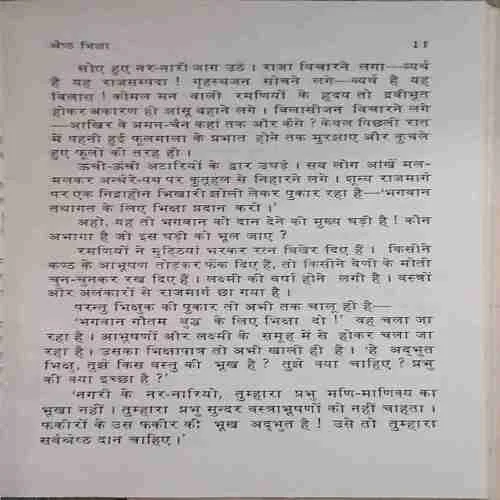 श्रेष्ठ भिक्षा 11
सोए हुए नर-नारी जाग उठे । राजा विचारने लगा—व्यर्थ
है यह राजसम्पदा ! गृहस्थजन सोचने लगे—व्यर्थ है यह
विलास ! कोमल मन वाली रमणियों के हृदय तो द्रवीभूत
होकर अकारण ही आंसू बहाने लगे । विलासीजन विचारने लगे
—आखिर वे अमन-चैन कहां तक और कैसे ? केवल पिछली रात
में पहनी हुई फूलमाला के प्रभात होते तक मुरझाए और कुचले
हुए फूलों की तरह ही ।
ऊंची-ऊंची अटारियों के द्वार उघड़े । सब लोग आंखें मल-
मलकर अन्धेरे-पथ पर कुतूहल से निहारने लगे । शून्य राजमार्ग
पर एक निद्राहीन भिखारी झोली लेकर पुकार रहा है—'भगवान
तथागत के लिए भिक्षा प्रदान करो ।'
अहो, यह तो भगवान को दान देने की मुख्य घड़ी है ! कौन
अभागा है जो इस घड़ी को भूल जाए ?
रमणियों ने मुट्ठियां भरकर रत्न बिखेर दिए हैं । किसीने
कण्ठ के आभूषण तोड़कर फेंक दिए हैं, तो किसीने वेणी के मोती
चुन-चुनकर रख दिए हैं । लक्ष्मी की वर्षा होने लगी है । वस्त्रों
और अलंकारों से राजमार्ग छा गया है ।
परन्तु भिक्षुक की पुकार तो अभी तक चालू ही है—
'भगवान गौतम बुद्ध के लिए भिक्षा दो !' वह चला जा
रहा है । आभूषणों और लक्ष्मी के समूह में से होकर चला जा
रहा है । उसका भिक्षापात्र तो अभी खाली ही है । 'हे अद्भुत
भिक्षु, तुझे किस वस्तु की भूख है ? तुझे क्या चाहिए ? प्रभु
की क्या इच्छा है ?'
'नगरी के नर-नारियो, तुम्हारा प्रभु मणि-माणिक्य का
भूखा नहीं । तुम्हारा प्रभु सुन्दर वस्त्राभूषणों को नहीं चाहता ।
फकीरों के उस फकीर की भूख अद्भुत है ! उसे तो तुम्हारा
सर्वश्रेष्ठ दान चाहिए ।'